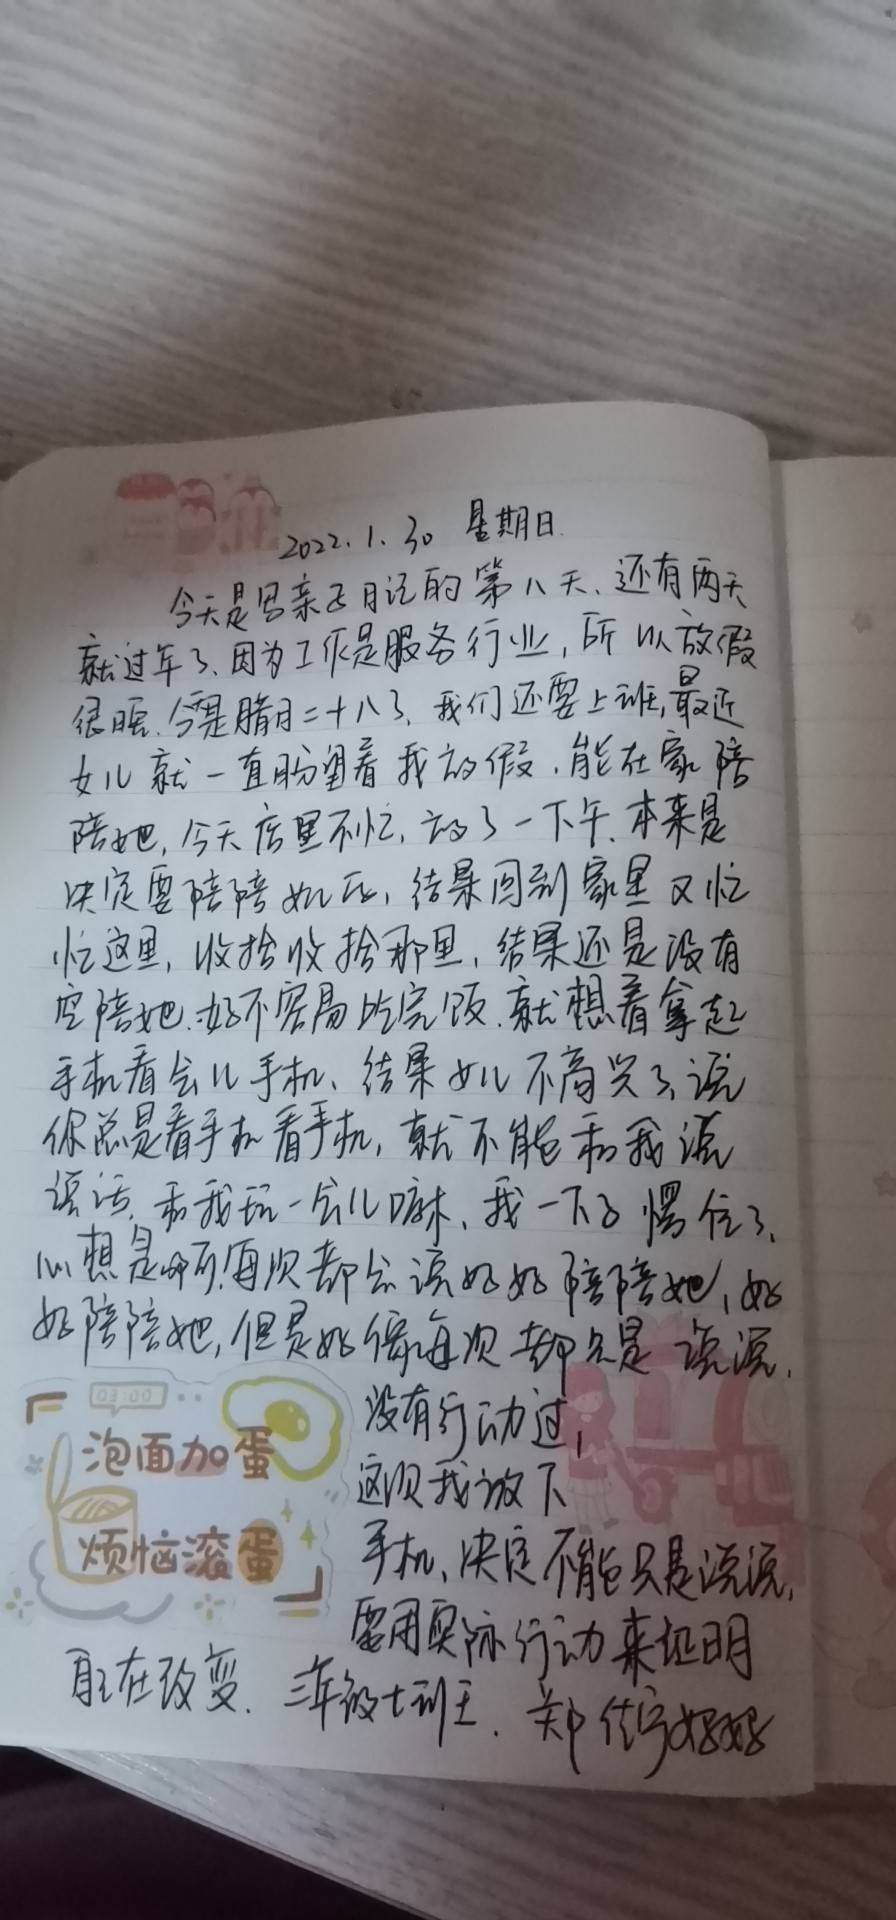 2022.1.30 星期日.
今天是写亲子日记的第八天、还有两天
就过年了、因为工作是服务行业，所以放假
很晚.今天是腊月二十八了、我们还要上班,最近
女儿就一直盼望着我放假、能在家陪
陪她,今天店里不忙、放了一下午、本来是
决定要陪陪女儿的，结果回到家里又忙
忙这里,收拾收拾那里,结果还是没有
空陪她.好不容易吃完饭.就想着拿起
手机看会儿手机、结果女儿不高兴了,说
你总是看手机看手机,就不能和我说
说话,和我玩一会儿嘛、我一下子愣住了、
心想是啊,每次都会说好好陪陪她,好
好陪陪她,但是好像每次都只是说说,
没有行动过,
这次我放下
手机、决定不能只是说说,
要用实际行动来证明
03:00
泡面加蛋
烦恼滚蛋
在改变. 三年级七班 郑佳 妈妈